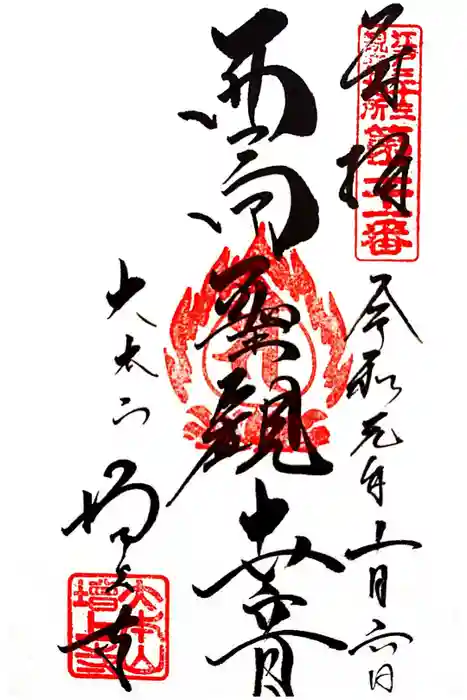 奉拝
江戸三十三
観音札所
第二十一番
令和元年十一月六日
西向聖観世音
大本山
増上寺
大本山
増上寺